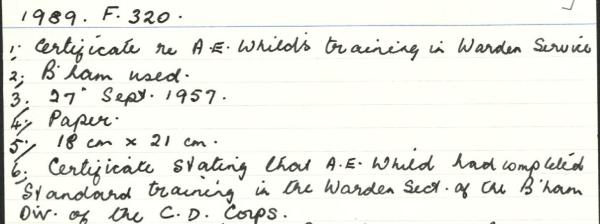 1989. F. 320.
1. Certificate re A.E. Whild's training in Warden Service
2. B'ham used.
3. 27 Sept. 1957.
4. Paper.
5. 18 cm x 21 cm.
6. Certificate stating that A.E. Whild had completed
Standard training in the Warden Sect. of the B'ham
Div. of the C.D. Corps.